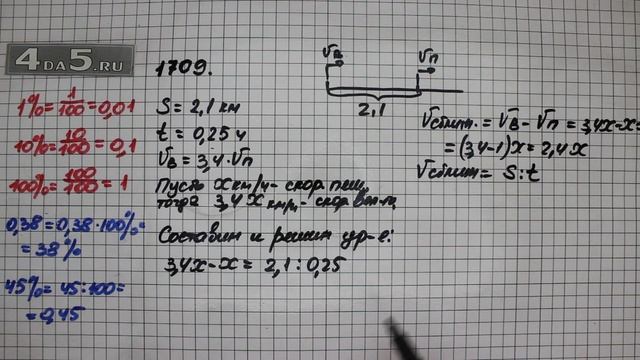 4DA5.RU
1709.
1% = 1/100 = 0,01
10% = 10/100 = 0,1
100% = 100/100 = 1
0,38 = 0,38·100% =
= 38%
45% = 45:100 =
= 0,45
S = 2,1 км
t = 0,25 ч
Vв = 3,4·Vп
Пусть x км/ч - скор. пеш,
тогда 3,4x км/ч - скор.
Составим и решим ур-е:
3,4x - x = 2,1 : 0,25
Vв
Vп
2,1
Vсближ. = Vв - Vп = 3,4x - x =
= (3,4 - 1)x = 2,4x
Vсближ = S : t